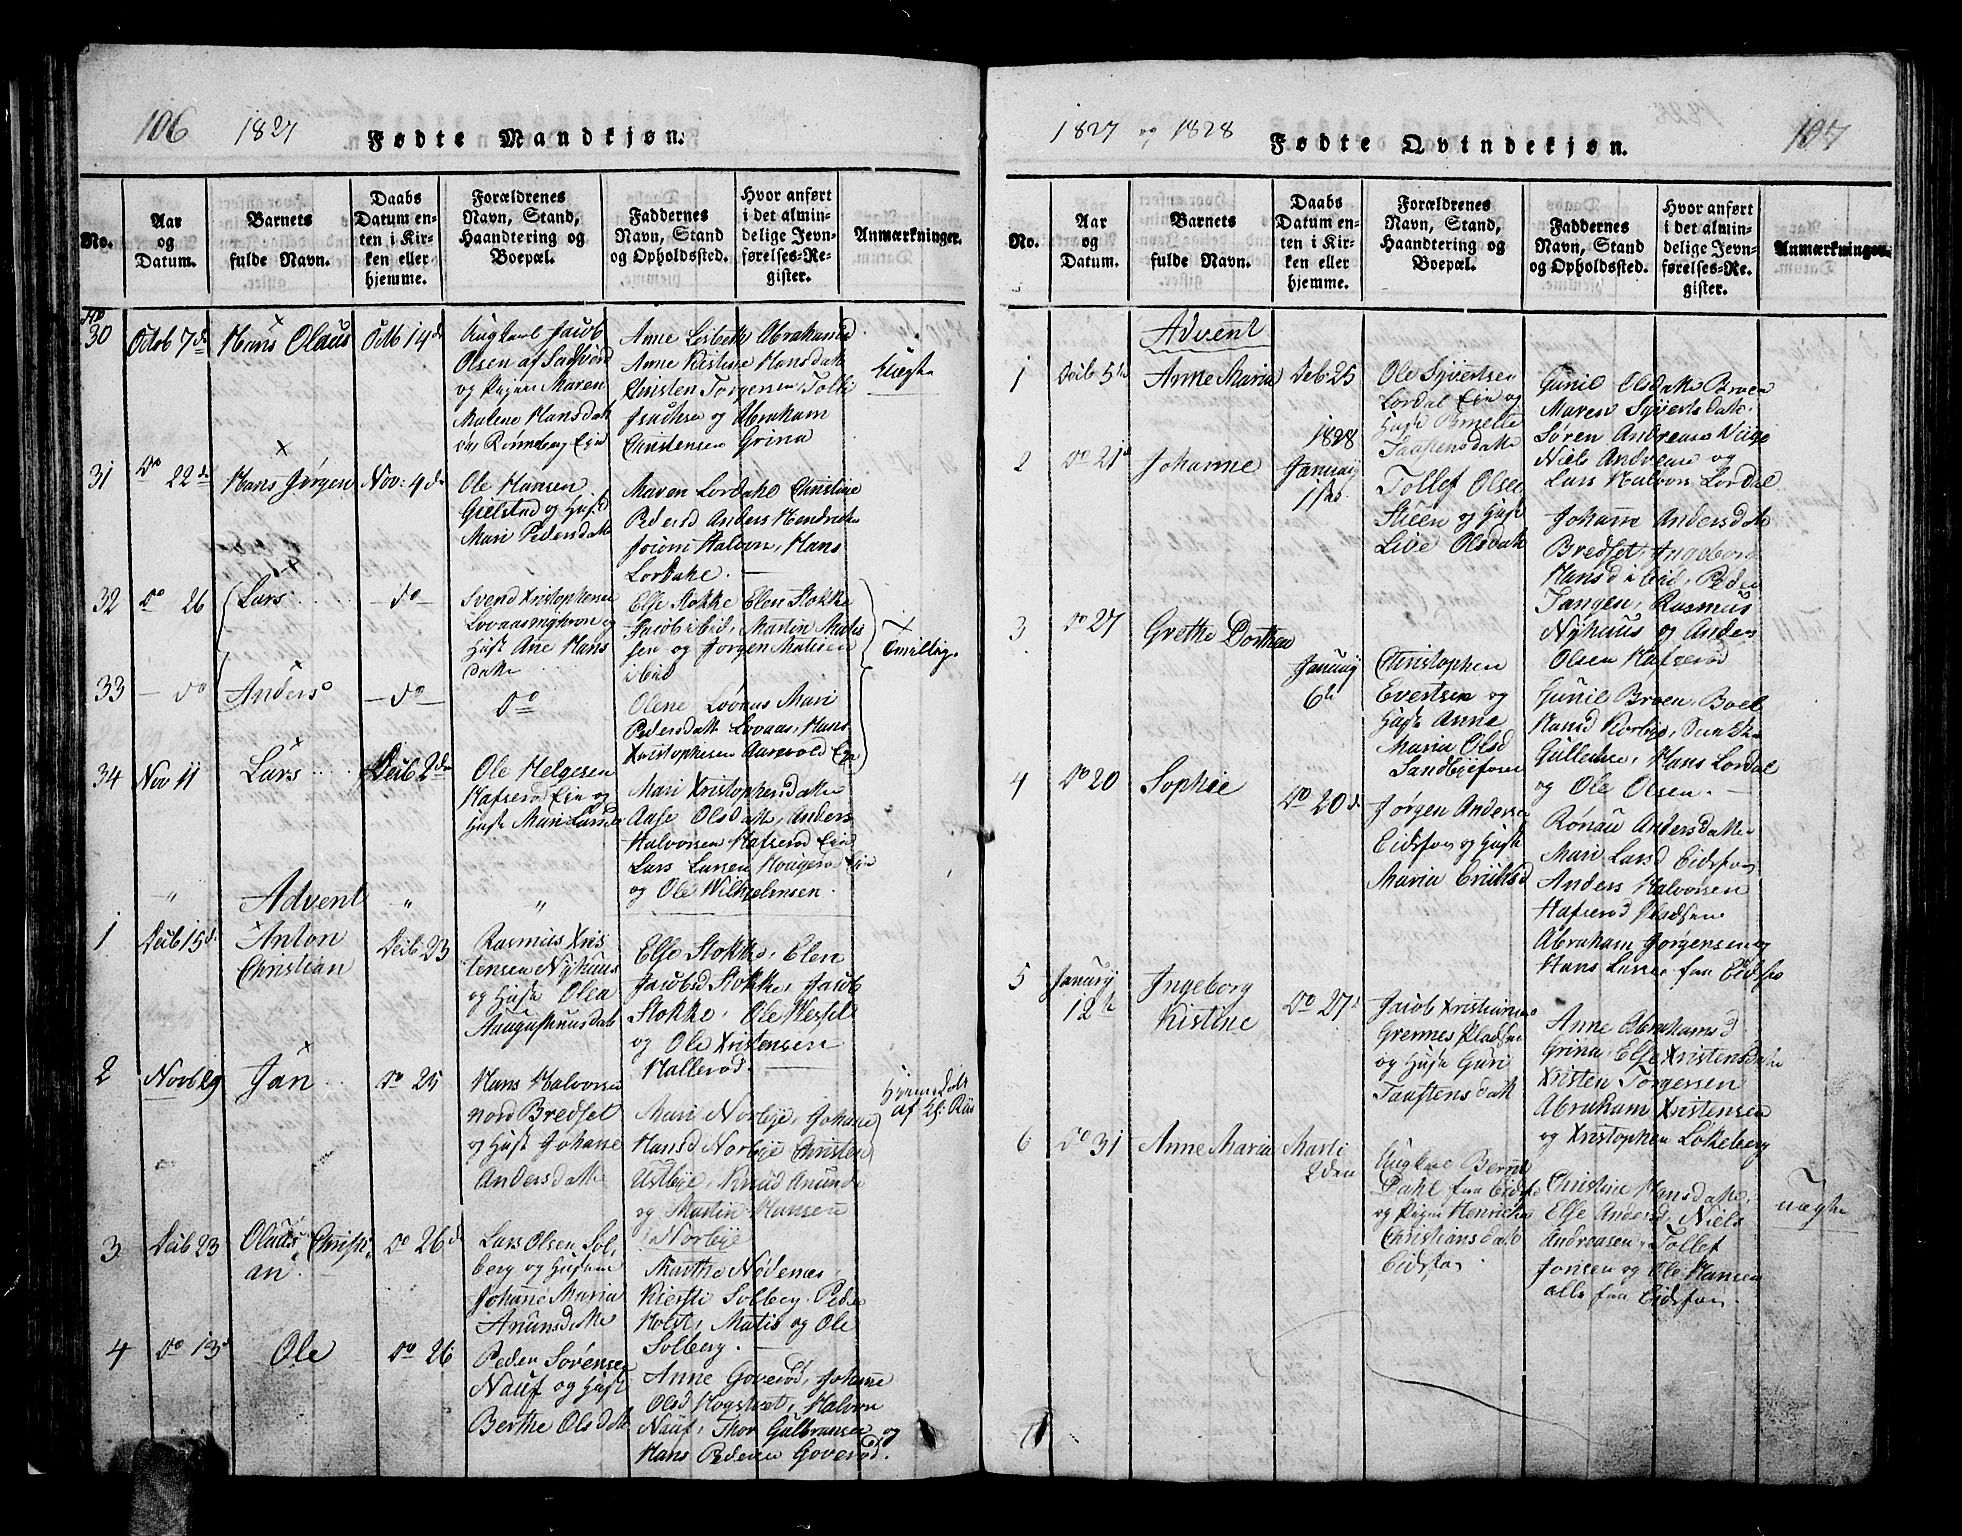 106 1827 Fødte Mandkjøn.
No.
Aar
og
Datum.
Barnets
fulde Navn.
Daabs
Datum en-
ten i Kir-
ken eller
hjemme.
Forældrenes
Navn, Stand,
Haandtering og
Boepæl.
Faddernes
Navn, Stand
og Opholdssted.
Hvor anført
i det almin-
delige Jevn-
førelses-Re-
gister.
Anmærkninger.
30
Octob 7de
Hans Olaus
Octb 14de
Ungkarl Jacob
Olsen af
og Pigen Maren
Malene Hansdatr
Anne Lisbeth Abrahamsd
Anne Kistine Hansdatr
Christen Torgersen
og Abraham
Christensen Grina
Uægte
31
Do 22de
Hans Jørgen
Nov: 4de
Ole Hansen
Gielstad og Hust
Mari Pedersdatr
Maren Lordahl Christine
Pedersd Anders Hendrichs
Halvors, Hans
Lordahl.
32
do 26
Lars
do
Svend Xristophersen
og
Hust Ane Hans
datr
Else Stokke Elen Stokke
Jacob ibid, Martin Mathis
sen og Jørgen Matisen
ibid
Tvillig.
33
do
Anders
do
do
Olene Lovaas Mari
Pedersdatr Lovaas, Hans
Xristophersen
34
Nov 11
Lars
Decb 2den
Ole Helgesen
Hafserød Eier og
Hust Mari Larsdr
Mari Xristophersdatter
Aase Olsdatr, Anders
Halvorsen Hafserød Eier
Lars Larsen
og Ole Wilhelmsen.
Advent
1
Decb 15de
Anton
Christian
Decb 23
Rasmus Xris
tensen Nyhuus
og Hust Olia
Augustinusdatr
Else Stokke, Elen
Jacobsd Stokke, Jacob
Stokke, Ole Wessel
og Ole Xristensen
Hallerød.
2
Novb 19
Jan
do 25
Hans Halvorsen
nord Bredset
og Hust Johane
Andersdatter
Mari Norbye, Johane
Hansd Norbye Christen
Ustbye, Knud Anunds
og Martin Hansen
Norbye
Hjemmedøbt
af
3
Decb 23
Olaus Christi
an
do 26de
Lars Olsen Sol
berg og Hustrue
Johane Maria
Anunsdatter
Marthe Nødenæs,
Kiersti Solberg. Peder
Holst, Matis og Ole
Solberg.
4
do 13
Ole
do 26
Peder Sørensen
Nauf og Hust
Berthe Olsdatr
Anne Goverød, Johanne
Olsd Hogstvet, Halvor
Nauf, Thor Gulbransen og
Hans Pedersen Goverød.
1827 og 1828 Fødte Qvindekjøn. 107
No.
Aar
og
Datum.
Barnets
fulde Navn.
Daabs
Datum en-
ten i Kir-
ken eller
hjemme.
Forældrenes
Navn, Stand,
Haandtering og
Boepæl.
Faddernes
Navn, Stand
og Opholdssted.
Hvor anført
i det almin-
delige Jevn-
førelses-Re-
gister.
Anmærkninger.
Advent
1
Decb 5te
Anne Maria
Deb. 25
Ole Syvertsen
Lordal Eier og
Hust
Taastensdatter
Gunil Olsdatter Broen
Maren Syvertsdatr,
Søren Andreas
Niels Andreas og
Lars Halvors Lordal
2
do 21de
Johanne
1828
January
1ste
Tollef Olsen
Steen og Hust
Live Olsdatr
Johanne Andersdatr
Bredset, Ingeborg
Hansd ibid, Peder
Tangen, Rasmus
Nyhuus og Anders
Olsen Hafserød
3
do 27
Grethe Dorthea
January
6te
Christopher
Evertsen og
Hust Anne
Maria Olsd
Gunil Broen, Boel
Hansd
Gullecksen, Hans Lordal
og Ole Olsen.
4
do 20
Sophie
do 20de
Jørgen Andersen
Eidsfos og Hust
Maria Eriksd
Rønau Andersdatter
Mari Larsd Eidsfos
Anders Halvorsen
Hafserød Pladsen
Abraham Jørgensen og
Hans Larsen fra Eidsfos
5
January
12te
Ingeborg
Kistine
do 27de
Jacob Xristians
Grennes Pladsen
og Hust Guri
Taastensdatr
Anne Abrahamsd
Grina, Else Xristensdatr
Xristen Torgersen
Abraham Xristensen
og Xristopher Løkeberg
6
do 31
Anne Maria
Marts
2den
Ungkarl Bernt
Dahl fra Eidsfos
og Pigen Henriche
Christiansdatr
Eidsfos.
Christine Hansdatter,
Else Andersd, Niels
Andreasen, Tollef
Jonsen og Ole Hansen
alle fra Eidsfos.
uægte